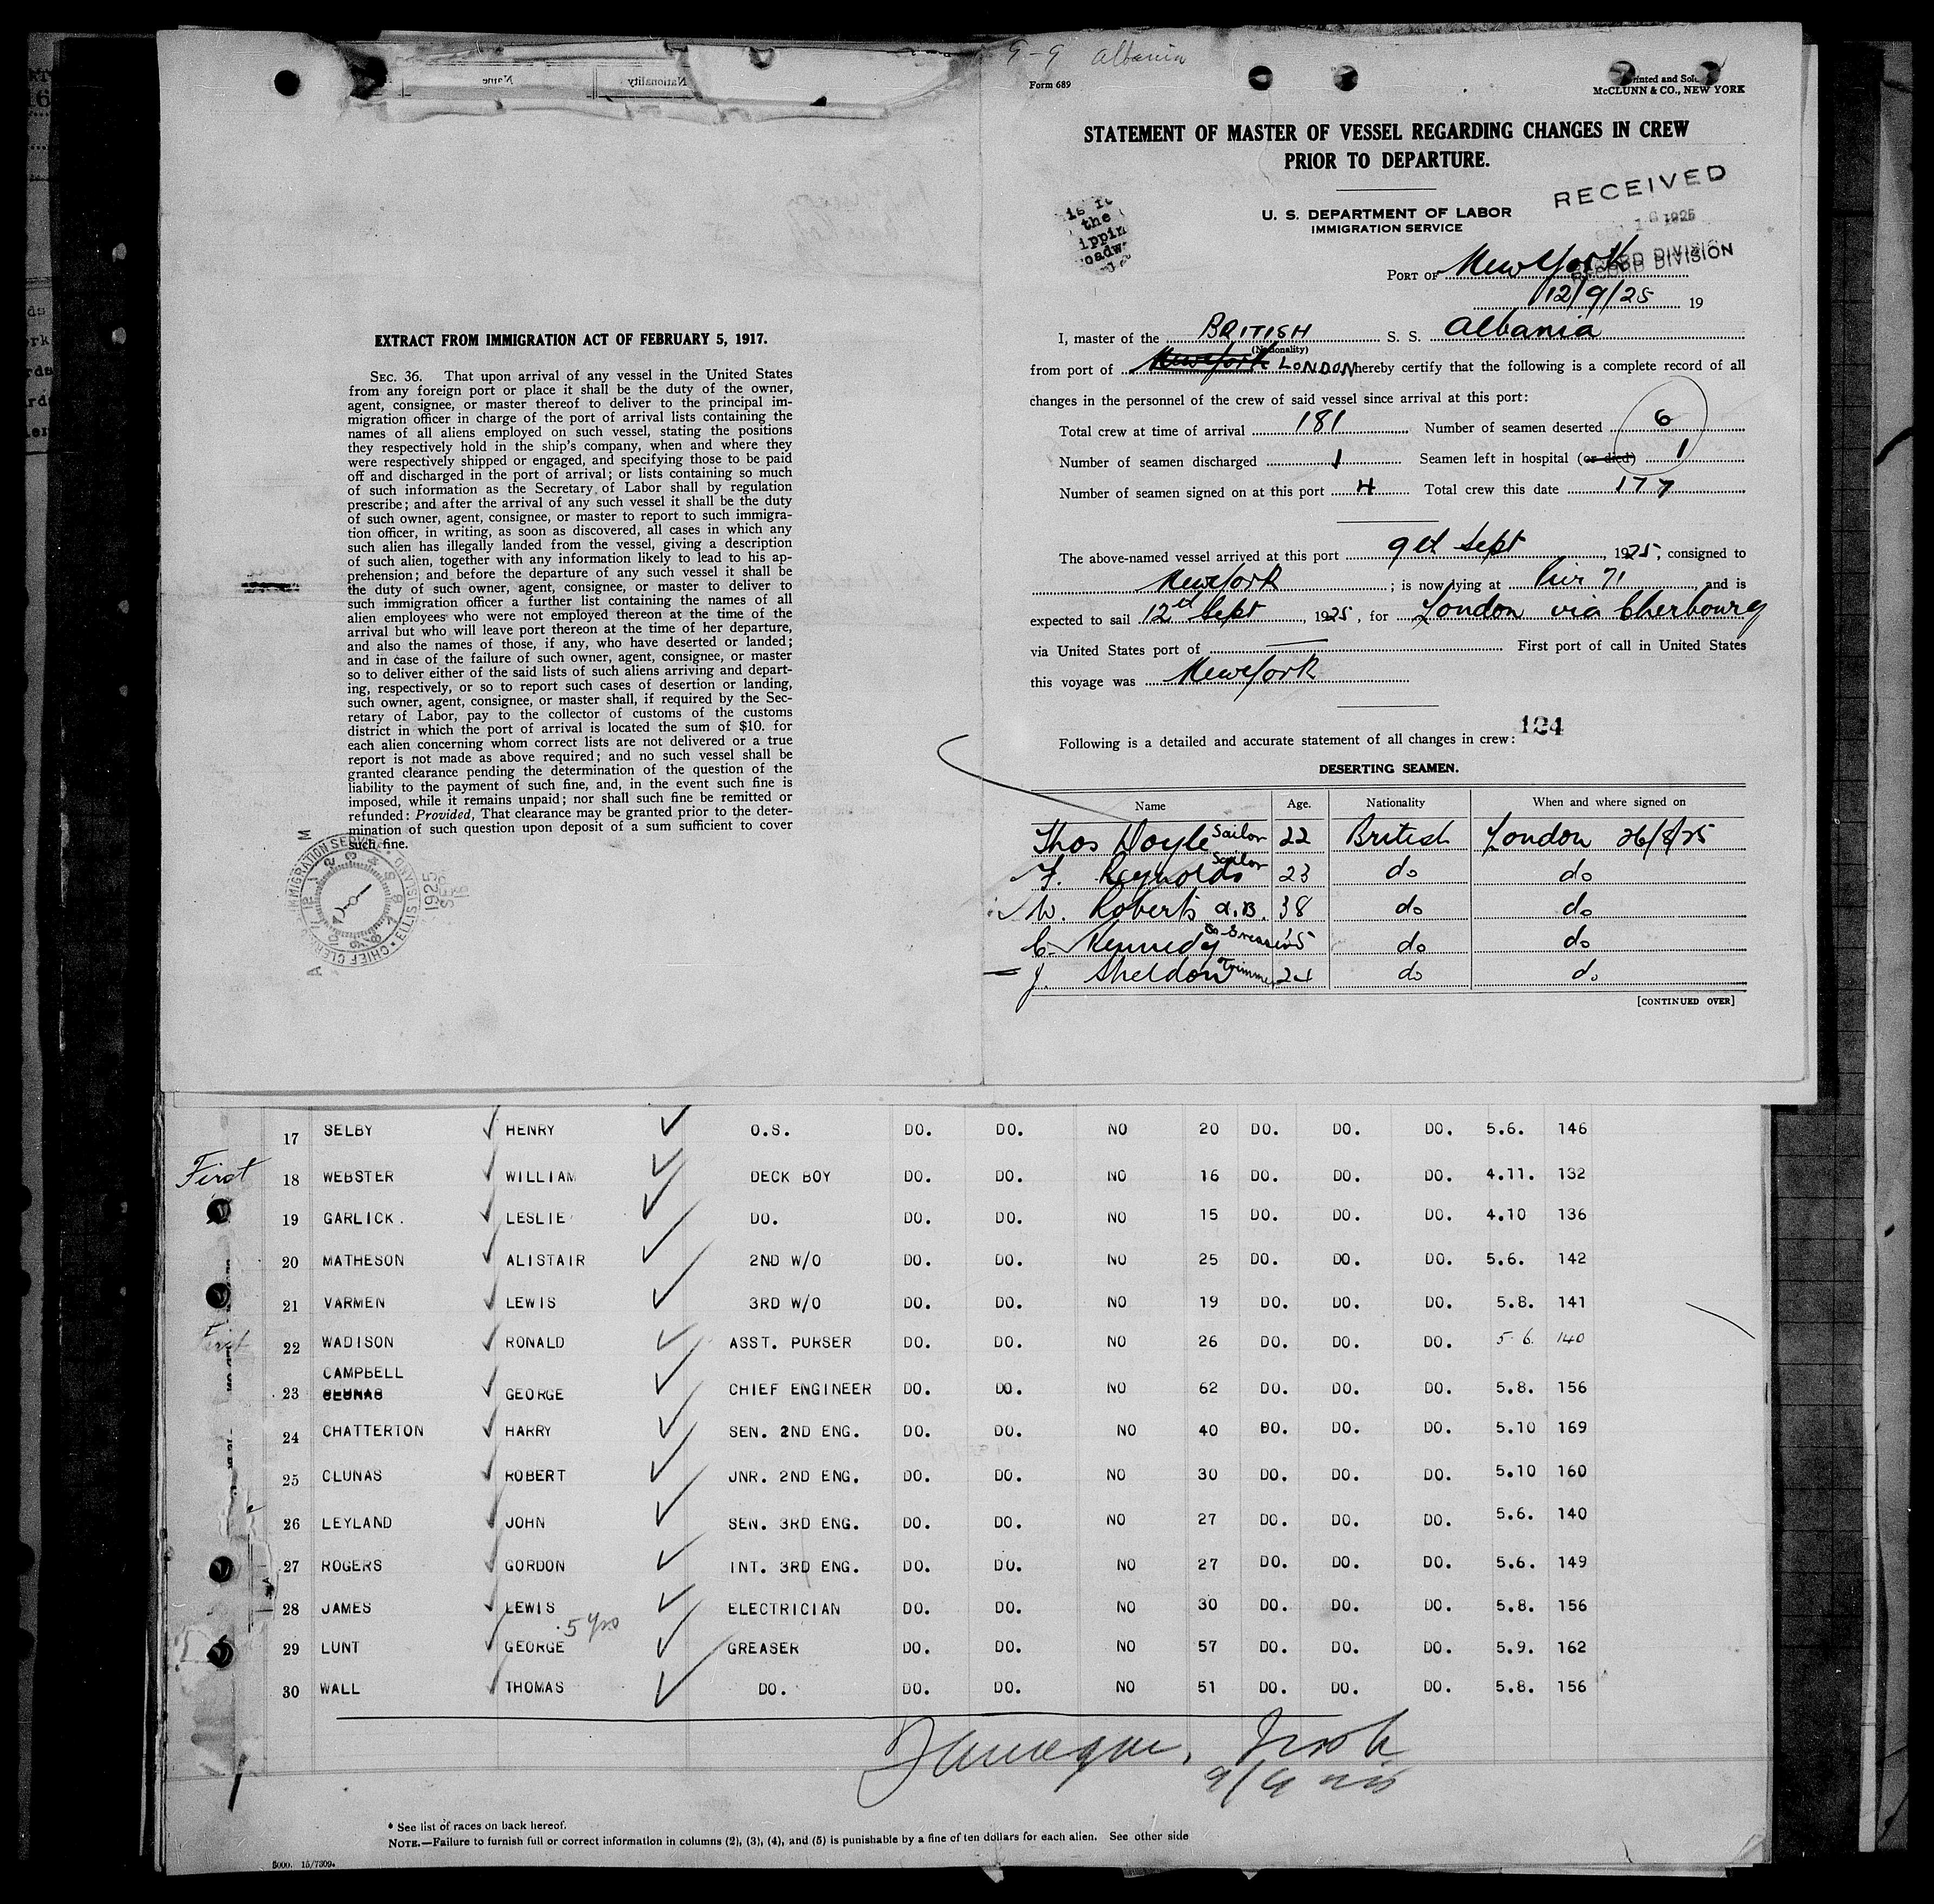 9-9 Albania
Form 689
Printed and Sold
McCLUNN & CO., NEW YORK
Name
Nationality
STATEMENT OF MASTER OF VESSEL REGARDING CHANGES IN CREW
PRIOR TO DEPARTURE.
U. S. DEPARTMENT OF LABOR
IMMIGRATION SERVICE
RECEIVED
1925
RECORD DIVISION
PORT OF New York
12/9/25 19
I, master of the BRITISH S. S. Albania
(Nationality)
from port of New York LONDON hereby certify that the following is a complete record of all
changes in the personnel of the crew of said vessel since arrival at this port:
Total crew at time of arrival 181 Number of seamen deserted 6
Number of seamen discharged 1 Seamen left in hospital (or died) 1
Number of seamen signed on at this port 4 Total crew this date 177
The above-named vessel arrived at this port 9th Sept, 1925, consigned to
New York; is now lying at Pier 71 and is
expected to sail 12th Sept, 1925, for London via Cherbourg
via United States port of First port of call in United States
this voyage was New York
124
Following is a detailed and accurate statement of all changes in crew:
DESERTING SEAMEN.
Name Age. Nationality When and where signed on
Thos Doyle Sailor 22 British London 26/8/25
F. Reynolds Sailor 23 do do
W. Roberts A.B. 38 do do
C. Kennedy do do
J. Sheldon Trimmer 24 do do
[CONTINUED OVER]
EXTRACT FROM IMMIGRATION ACT OF FEBRUARY 5, 1917.
SEC. 36. That upon arrival of any vessel in the United States
from any foreign port or place it shall be the duty of the owner,
agent, consignee, or master thereof to deliver to the principal im-
migration officer in charge of the port of arrival lists containing the
names of all aliens employed on such vessel, stating the positions
they respectively hold in the ship's company, when and where they
were respectively shipped or engaged, and specifying those to be paid
off and discharged in the port of arrival; or lists containing so much
of such information as the Secretary of Labor shall by regulation
prescribe; and after the arrival of any such vessel it shall be the duty
of such owner, agent, consignee, or master to report to such immigra-
tion officer, in writing, as soon as discovered, all cases in which any
such alien has illegally landed from the vessel, giving a description
of such alien, together with any information likely to lead to his ap-
prehension; and before the departure of any such vessel it shall be
the duty of such owner, agent, consignee, or master to deliver to
such immigration officer a further list containing the names of all
alien employees who were not employed thereon at the time of the
arrival but who will leave port thereon at the time of her departure,
and also the names of those, if any, who have deserted or landed;
and in case of the failure of such owner, agent, consignee, or master
so to deliver either of the said lists of such aliens arriving and depart-
ing, respectively, or so to report such cases of desertion or landing,
such owner, agent, consignee, or master shall, if required by the Sec-
retary of Labor, pay to the collector of customs of the customs
district in which the port of arrival is located the sum of $10. for
each alien concerning whom correct lists are not delivered or a true
report is not made as above required; and no such vessel shall be
granted clearance pending the determination of the question of the
liability to the payment of such fine, and, in the event such fine is
imposed, while it remains unpaid; nor shall such fine be remitted or
refunded: Provided, That clearance may be granted prior to the deter-
mination of such question upon deposit of a sum sufficient to cover
such fine.
17 SELBY HENRY O.S. DO. DO. NO 20 DO. DO. DO. 5.6. 146
First 18 WEBSTER WILLIAM DECK BOY DO. DO. NO 16 DO. DO. DO. 4.11. 132
19 GARLICK. LESLIE DO. DO. DO. NO 15 DO. DO. DO. 4.10 136
20 MATHESON ALISTAIR 2ND W/O DO. DO. NO 25 DO. DO. DO. 5.6. 142
21 VARMEN LEWIS 3RD W/O DO. DO. NO 19 DO. DO. DO. 5.8. 141
First 22 WADISON RONALD ASST. PURSER DO. DO. NO 26 DO. DO. DO. 5-6. 140
CAMPBELL
23 CLUNAS GEORGE CHIEF ENGINEER DO. DO. NO 62 DO. DO. DO. 5.8. 156
24 CHATTERTON HARRY SEN. 2ND ENG. DO. DO. NO 40 DO. DO. DO. 5.10 169
25 CLUNAS ROBERT JNR. 2ND ENG. DO. DO. NO 30 DO. DO. DO. 5.10 160
26 LEYLAND JOHN SEN. 3RD ENG. DO. DO. NO 27 DO. DO. DO. 5.6. 140
27 ROGERS GORDON INT. 3RD ENG. DO. DO. NO 27 DO. DO. DO. 5.6. 149
28 JAMES LEWIS ELECTRICIAN DO. DO. NO 30 DO. DO. DO. 5.8. 156
5 yrs
29 LUNT GEORGE GREASER DO. DO. NO 57 DO. DO. DO. 5.9. 162
30 WALL THOMAS DO. DO. DO. NO 51 DO. DO. DO. 5.8. 156
* See list of races on back hereof.
NOTE.—Failure to furnish full or correct information in columns (2), (3), (4), and (5) is punishable by a fine of ten dollars for each alien. See other side
5000. 15/7309.